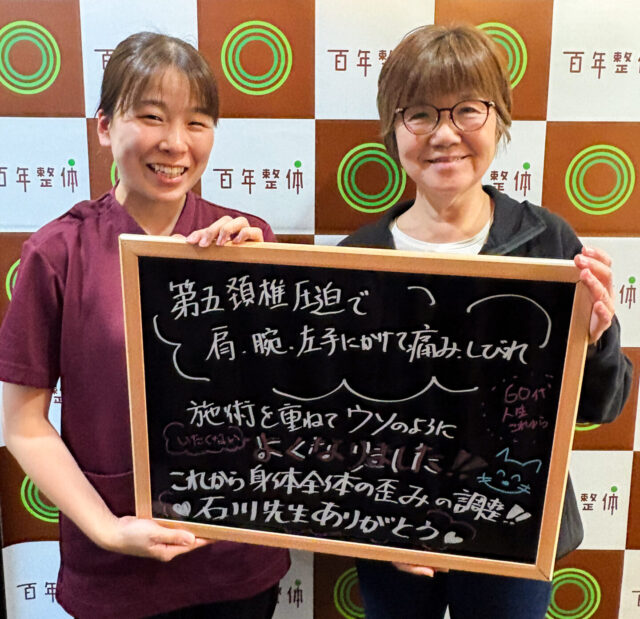 百年整体
百年整体
百年整体
百年整体
百年整体
第五頚椎圧迫で
肩、腕、左手にかけて痛み、しびれ
施術を重ねてウソのように
いたくない
よくなりました!!
60代
人生
これから
これから身体全体の歪みの調整!!
♥石川先生ありがとう♥
百年整体
百年整体